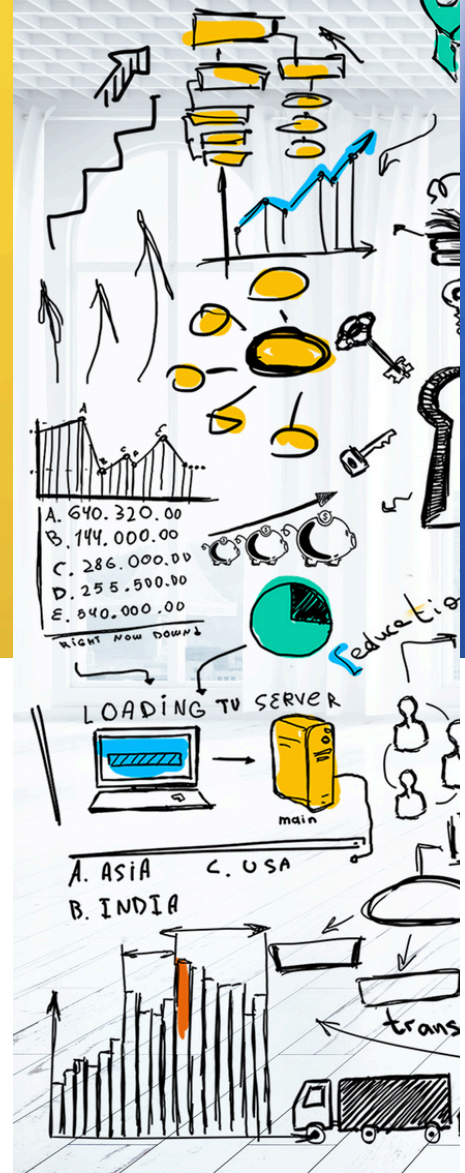 A
B
C
D
E
A. 640.320.00
B. 144.000.00
C. 286.000.00
D. 255.500.00
E. 540.000.00
RIGHT NOW DOWN
educatio
LOADING TV SERVER
main
A. ASIA C. USA
B. INDIA
trans